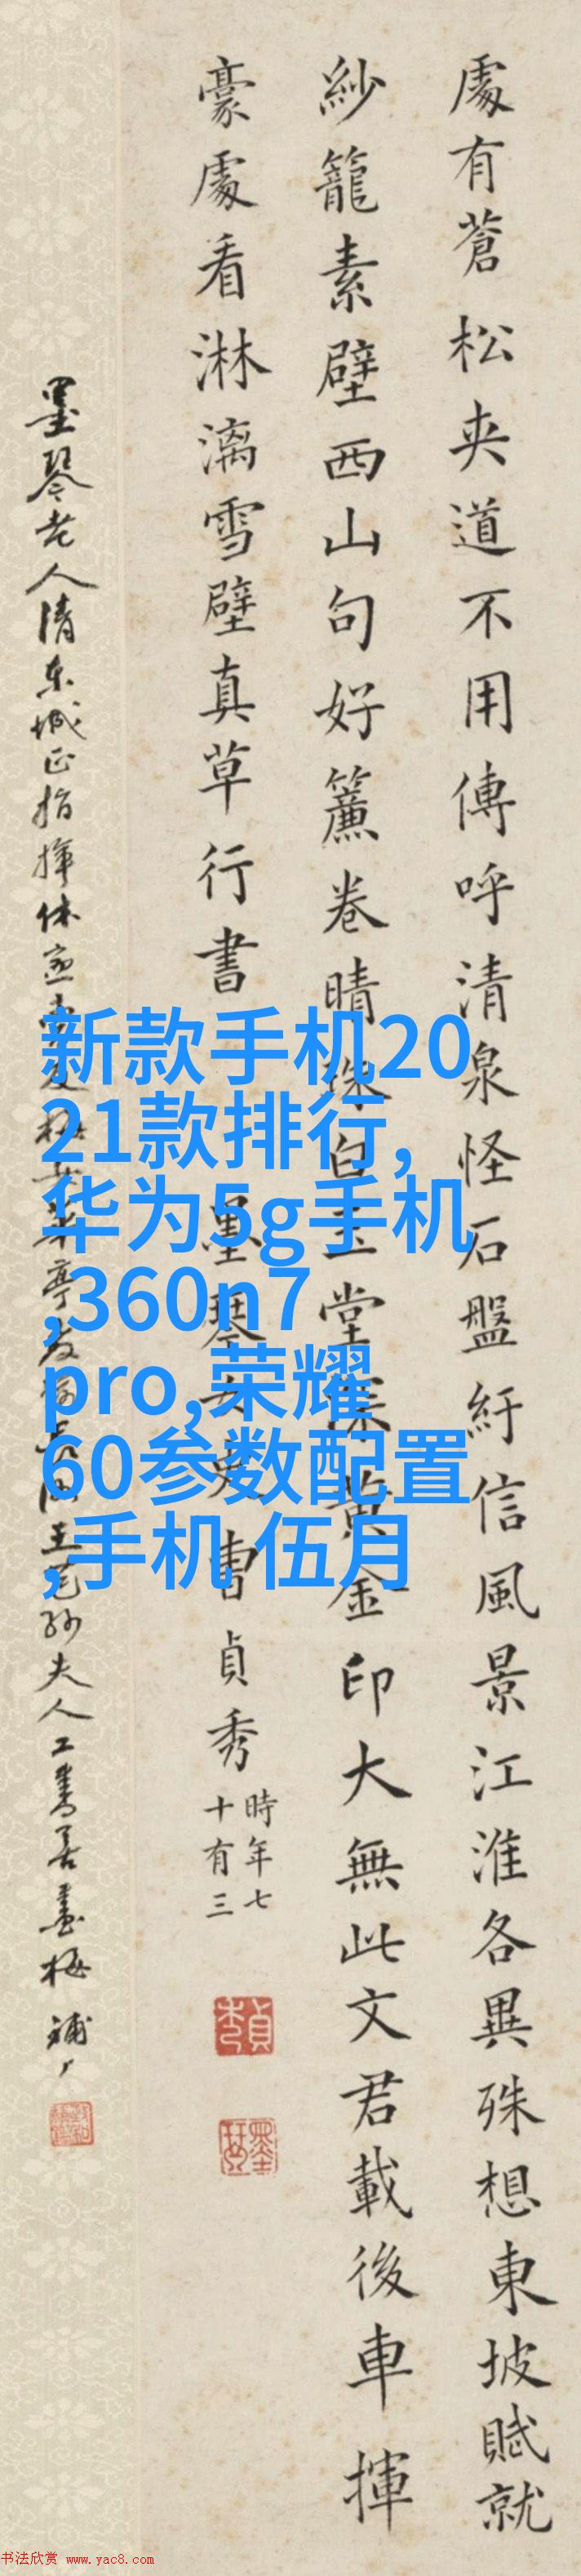 處有蒼松夾道不用傳呼清泉怪石盤紆信風景江淮各異殊想東坡賦就
紗籠素壁西山句好簾卷晴珠白玉堂深黃金印大無此文君載後車揮
豪處看淋漓雪壁真草行書
墨琴女史曹貞秀
時年七
十有三
貞秀
墨琴
墨琴老人清東城正指揮
王芑孫夫人工書善畫梅
新款手机20
21款排行,
华为5g手机
,360n7
pro,荣耀
60参数配置
,手机 伍月
书法欣赏 www.yac8.com